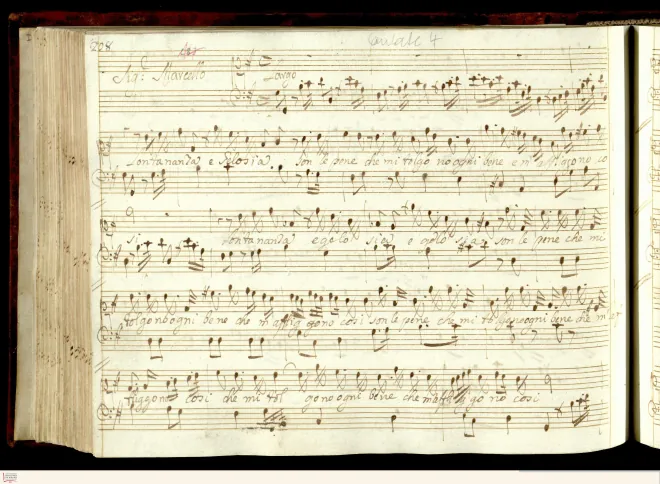 228
Cantate 4
Sig: Marcello
Largo
Lontananza e Gelosia. Son le pene che mi tolgo no ogni bene e m'affligono co
si Lontananza e gelo sia e gelo sia son le pene che mi
tolgono ogni bene che m'affligono cosi son le pene che mi tolgono ogni bene che
fliggono cosi che mi tol gono ogni bene che gono cosi